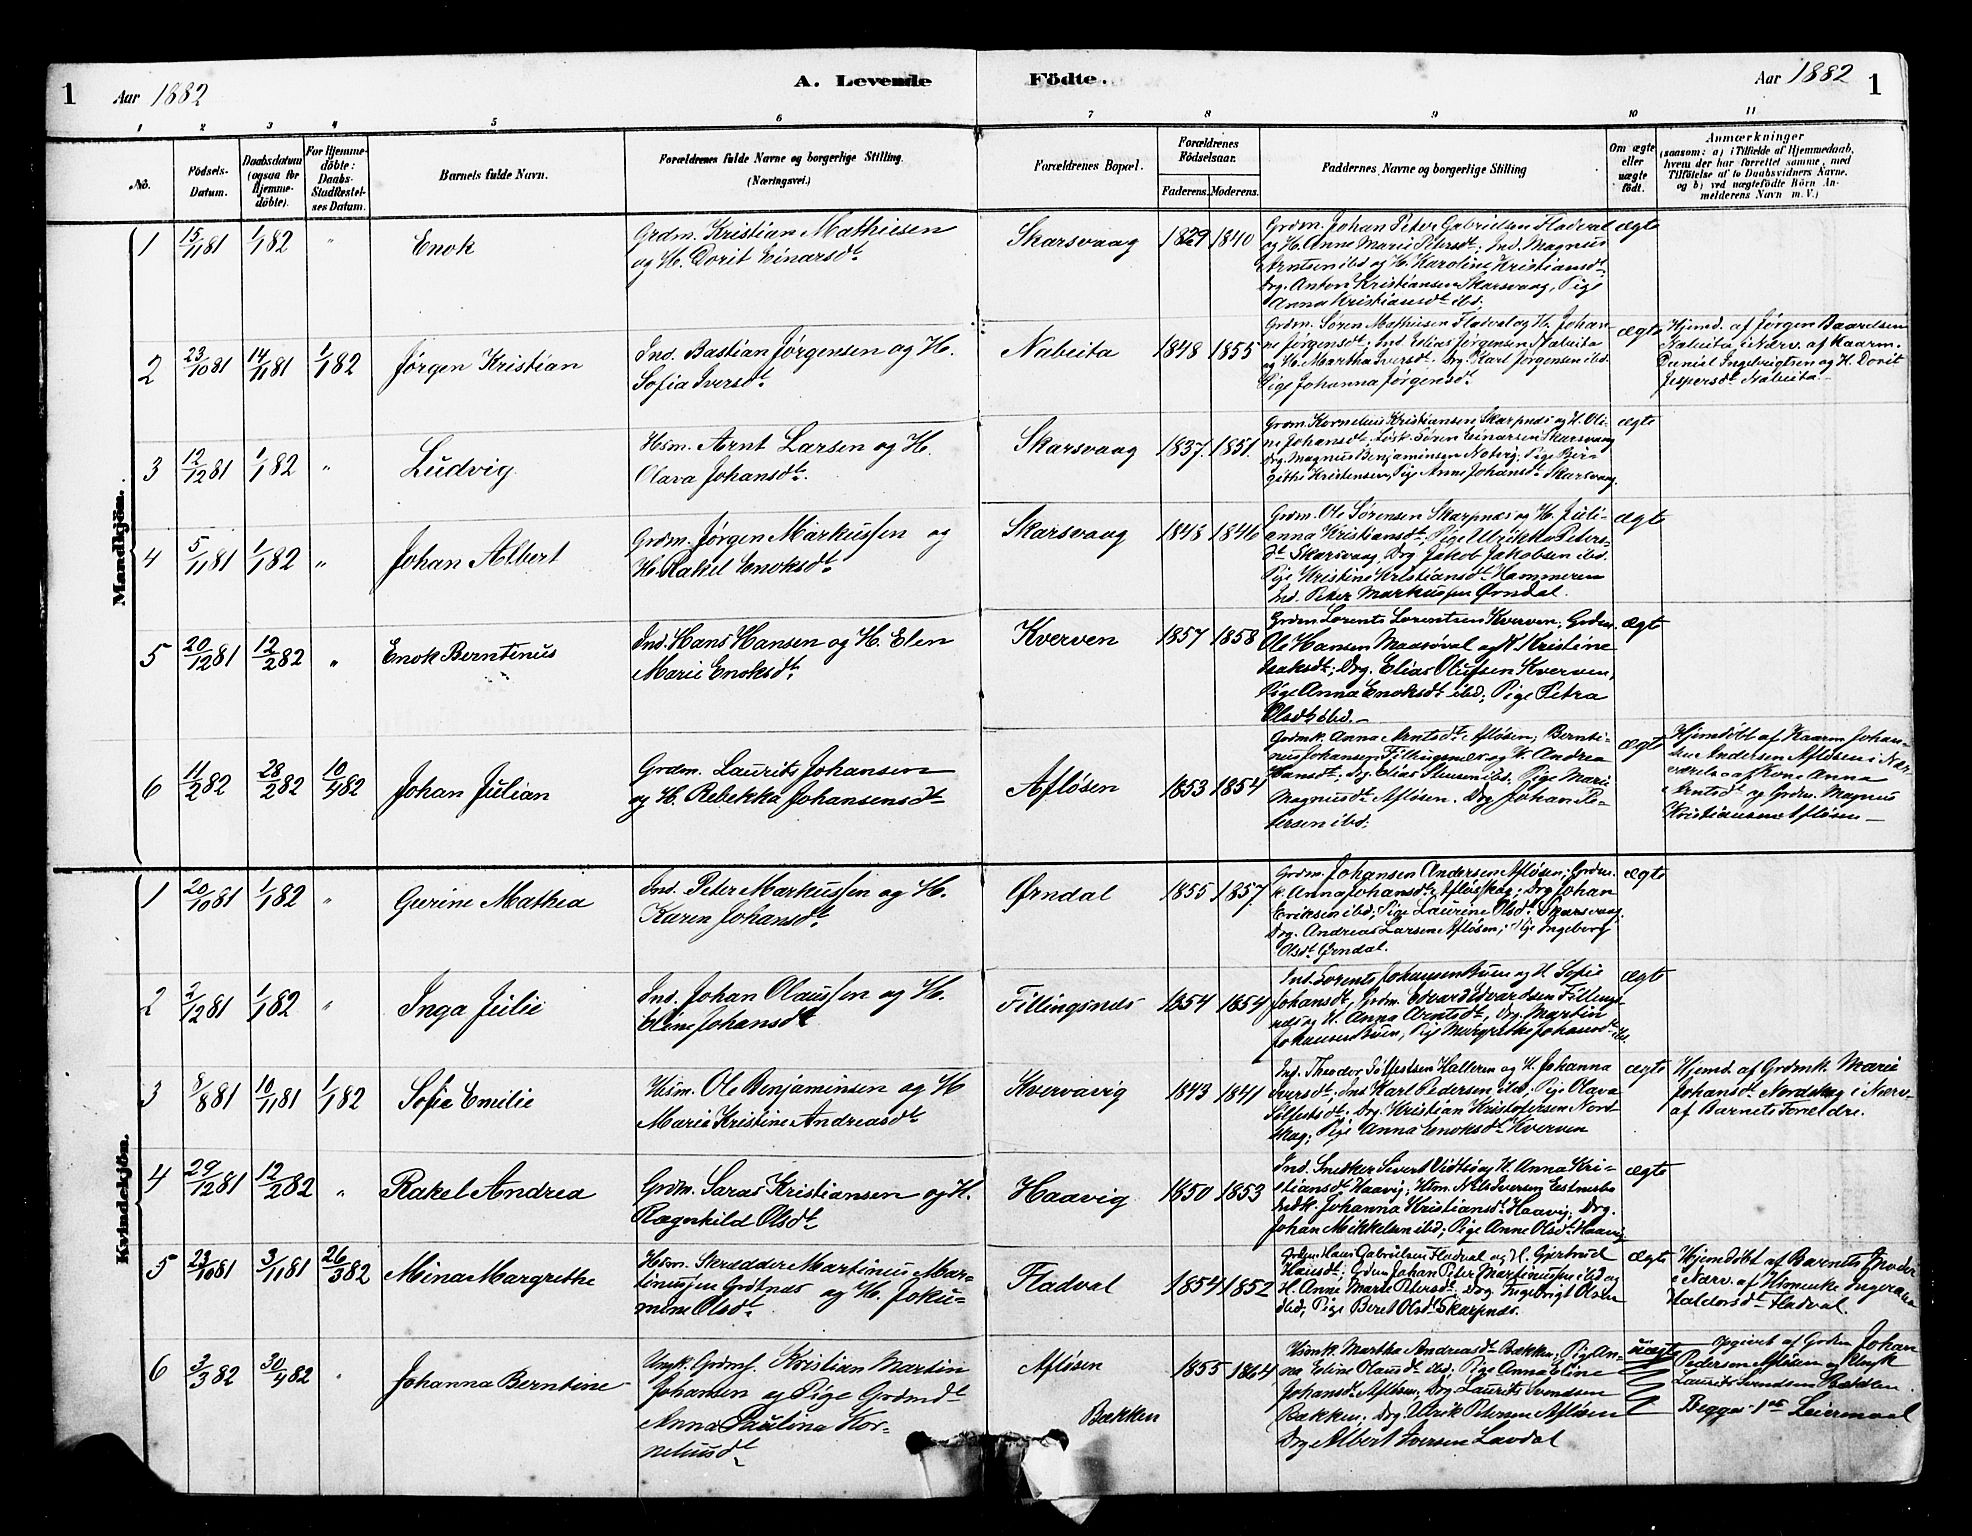 1 Aar 1882 A. Levende Födte. Aar 1882 1
1 2 3 4 5 6 7 8 9 10 11
No.
Födsels-
Datum.
Daabsdatum
(ogsaa for
Hjemme-
döbte).
For Hjemme-
döbte:
Daabs-
Stadfæstel-
ses Datum.
Barnets fulde Navn.
Forældrenes fulde Navne og borgerlige Stilling.
(Næringsvei.)
Forældrenes Bopæl.
Forældrenes
Födselsaar.
Faderens. Moderens.
Faddernes Navne og borgerlige Stilling
Om ægte
eller
uægte
födt.
Anmærkninger
(saasom: a) i Tilfælde af Hjemmedaab,
hvem der har forrettet samme, med
Tilföielse af to Daabsvidners Navne,
og b) ved uægtefödte Börn An-
melderens Navn m.V.)
Mandkjön.
1 15/11 81 1/1 82 " Enok
Grdm. Kristian Mathiesen
og H. Dorit Einarsdt
Skarsvaag 1829 1840
Grdm. Johan Peter Gabrielsen Fladval
og H. Anne Marie Petersdt; Ind. Magnus
Arntsen ibd og H. Karoline Kristiansdt;
Drg. Anton Kristiansen Skarsvaag, Pige
Anna Kristiansdt ibd.
ægte
2 23/10 81 14/11 81 1/1 82 Jørgen Kristian
Ind. Bastian Jørgensen og H.
Sofia Iversdt
Nabeita 1848 1855
Grdm. Søren Mathiesen Fladval og H. Johan-
ne Jørgensdt; Ind. Elias Jørgensen Nabeita
og H. Martha Iversdt. Drg. Karl Jørgensen ibd.
Pige Johanna Jørgensdt
ægte
Hjemd. af Jørgen Baardsen
Nabeita i Nærv. af Kaarm.
Daniel Ingebrigtsen og H. Dorit
Jespersdt Nabeita
3 12/12 81 1/1 82 " Ludvig
Hsm. Arnt Larsen og H.
Olava Johansdt.
Skarsvaag 1837 1851
Grdm. Kornelius Kristiansen Skarpnes og H. Oli-
ne Johansdt. Løsk. Søren Einarsen Skarsvaag
Drg. Magnus Benjaminsen; Pige Ber-
githe Kristensen, Pige Anne Johansdt Skarsvaag.
ægte
4 5/11 81 1/1 82 " Johan Albert
Grdm. Jørgen Markussen og
H. Rakel Enoksdt
Skarsvaag 1848 1846
Grdm. Ole Sørensen Skarpnes og H. Juli-
anna Kristiansdt, Pige Ulrikke Peters-
dt Skarsvaag, Drg Jakob Jakobsen ibd.
Pige Kristine Kristiansdt Hammeren
Ind. Peter Markussen Ørndal.
ægte
5 20/12 81 12/2 82 " Enok Berntinus
Ind. Hans Hansen og H. Elen
Marie Enoksdt
Kverven 1857 1858
Grdm Lorents Lorentsen Kverven; Grdm.
Ole Hansen Maasøval og H. Kristine
Isaksdt; Drg. Elias Olufsen Kverven,
Pige Anna Enoksdt ibd; Pige Petra
Olsdt ibd.
ægte
6 11/2 82 28/2 82 10/4 82 Johan Julian
Grdm. Laurits Johansen
og H. Rebekka Johansensdt
Afløsen 1853 1854
Grdmk. Anna Arntsdt Afløsen; Bernti-
nus Johansen Fillingsnes og H. Andrea
Hansdt; Drg Elias ibd; Pige Marie
Magnusdt Afløsen. Drg Johan Pe-
tersen ibd;
ægte
Hjemdøbt af Kaarm Johan-
sen Andersen Afløsen i Nær-
værelse af Kone Anna
Arntsdt og Grdm. Magnus
Kristiansen Afløsen
Kvindekjön.
1 20/10 81 1/1 82 " Gurine Mathea
Ind. Peter Markussen og H.
Karen Johansdt
Ørndal 1855 1857
Grdm. Johansen Andersen Afløsen; Grdm.
k. Anna Johansdt; Drg Johan
Eriksen ibd; Pige Laurine Olsdt Skarsvaag.
Drg. Andreas Larsen Afløsen; Pige Ingeborg
Olsdt Ørndal.
ægte
2 3/12 81 1/1 82 " Inga Julie
Ind. Johan Olaussen og H.
Eline Johansdt
Fillingsnes 1854 1854
Ind. Lorents Johansen Buen og H. Sofie
Johansdt, Grdm. Edvard Edvardsen Fillings-
nes og H. Anna Arntsdt, Drg. Martin
Johansen Buen, Pige Margrethe Johansdt ibd.
ægte
3 8/8 81 10/11 81 1/1 82 Sofie Emilie
Hsm. Ole Benjaminsen og H
Marie Kristine Andreasdt
Kvervavig 1843 1841
Ind. Theodor Tølfestsen Halleren og H. Johanna
Iversdt; Ind Karl Pedersen ibd, Pige Olava
Tølfestsdt; Drg. Kristian Kristofersen Nord-
skag; Pige Anna Enoksdt Kverven
ægte
Hjemd af Grdmk. Marie
Johansdt Nordskag i Nærv.
af Barnets Forældre.
4 29/12 81 12/2 82 " Rakel Andrea
Grdm. Saras Kristiansen og H.
Ragnhild Olsdt
Haavig 1850 1853
Ind. Snedker Sivert og H. Anna Kri-
stiansdt Haavig; Hsm. Nils Iversen
Johanna Kristiansdt Haavig; Drg.
Johan Mikkelsen ibd; Pige Anne Olsdt Haavig
ægte
5 23/10 81 3/11 81 26/3 82 Mina Margrethe
Hsm. Skrædder Martinus Mar-
tinussen Grøtnes og H. Joku-
mine Olsdt
Fladval 1854 1852
Grdm Hans Gabrielsen Fladval og H. Gjertrud
Hansdt; Grdm Johan Peter Martinussen ibd og
H. Anne Marie Petersdt. Drg Ingebrigt Olsen
ibd; Pige Beret Olsdt Skarpnes.
ægte
Hjemdøbt af Barnets Moder
i Nærv. af
Haldorsdt Fladval.
6 3/3 82 30/4 82 " Johanna Berntine
Ungk. Grdms. Kristian Martin
Johansen og Pige Grdmdt
Anna Paulina Kor-
neliusdt
Afløsen
Bækken
1855 1864
Hsmk. Martha Andreasdt Bækken, Pige An-
na Eline Olausdt ibd; Pige Anna Eline
Johansdt Afløsen; Drg Laurits Svendsen
Bækken; Drg Ulrik Petersen Afløsen
Drg Albert Iversen Lavdal
uægte
Opgivet af Grdm Johan
Pedersen Afløsen og Ungk
Laurits Svendsen
Begges 1ste Leiermaal